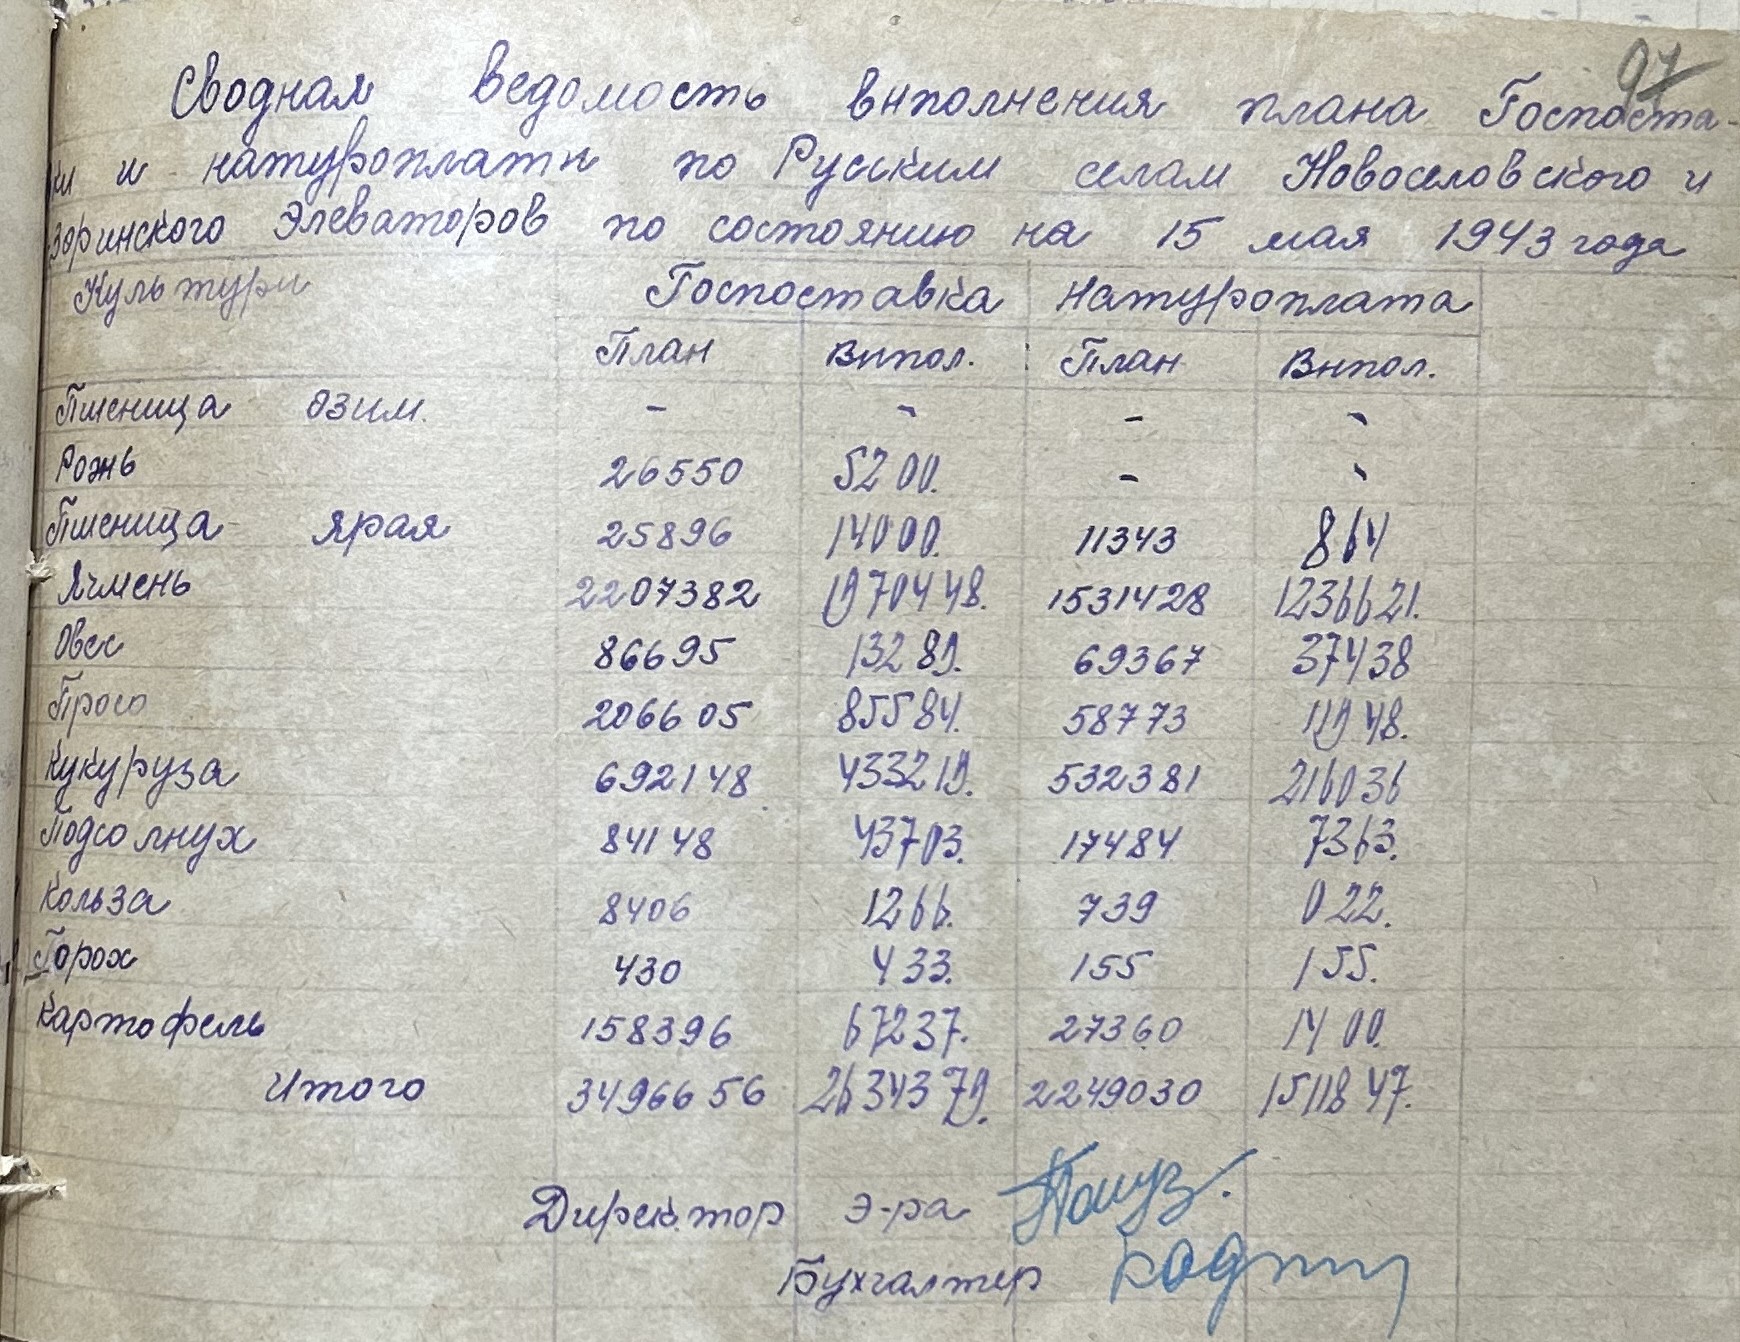 97
Сводная ведомость выполнения плана Госпоста-
ки и натуроплаты по Русским селам Новоселовского и
зоринского Элеваторов по состоянию на 15 мая 1943 года
Культуры Госпоставка Натуроплата
План Выпол. План Выпол.
Пшеница озим. - - - -
Рожь 26550 5200. - -
Пшеница ярая 25896 14000. 11343 864
Ячмень 2207382 1970448. 1531428 1236621.
Овес 86695 13289. 69367 37438
Просо 206605 85584. 58773 11948.
Кукуруза 692148 433219. 532381 216036
Подсолнух 84148 43703. 17484 7363.
Кольза 8406 1266. 739 022.
Горох 430 433. 155 155.
Картофель 158396 67237. 27360 1400.
Итого 3496656 2634379. 2249030 1511847.
Директор э-ра
Бухгалтер